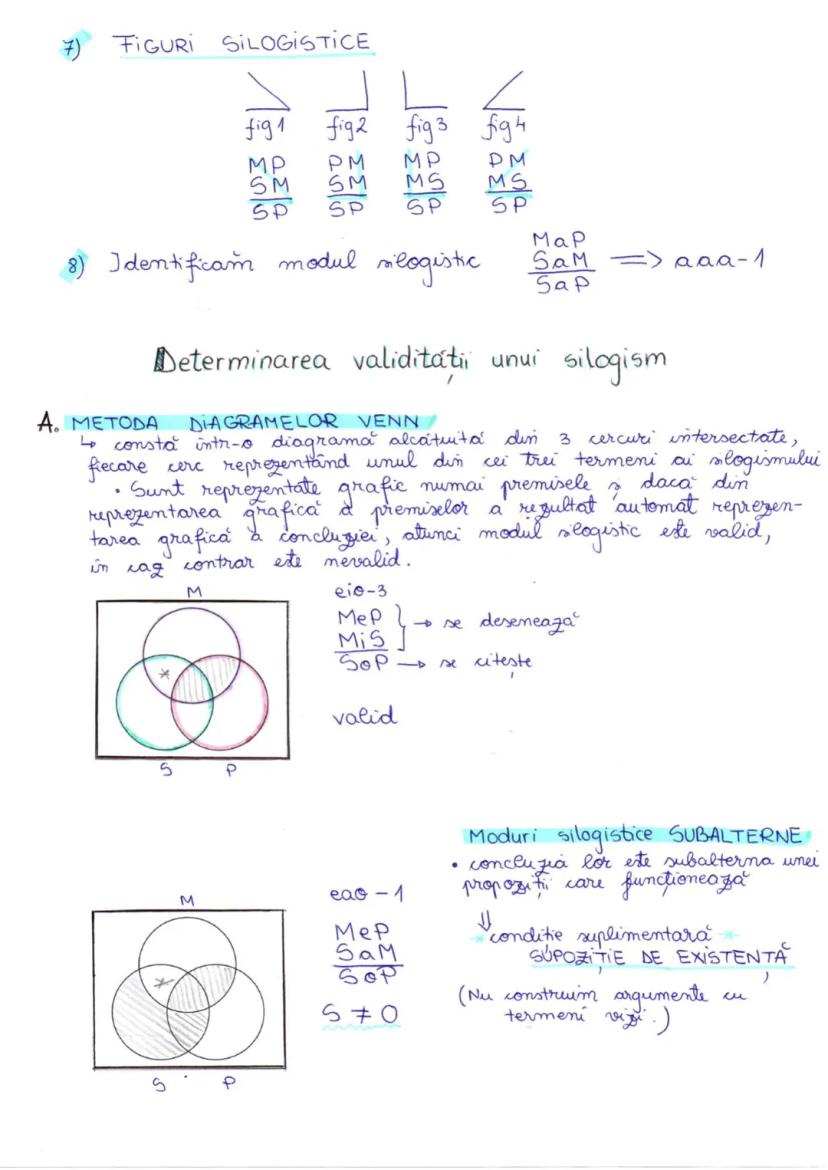 7) FIGURI SILOGISTICE
fig1 fig2 fig3 fig4
MP PM MP PM
SM SM MS MS
SP SP SP SP
MaP
8) Identificăm modul silogistic SaM => aaa-1
SaP
Determinarea validității unui silogism
A. METODA DIAGRAMELOR VENN
↳ constă într-o diagramă alcătuită din 3 cercuri intersectate,
fiecare cerc reprezentând unul din cei trei termeni ai silogismului
• Sunt reprezentate grafic numai premisele și dacă din
reprezentarea grafică a premiselor a rezultat automat reprezen-
tarea grafică a concluziei, atunci modul silogistic este valid,
în caz contrar este nevalid.
M
eio-3
MeP
MiS → se desenează
SoP → se citește
valid
S P
Moduri silogistice SUBALTERNE
• concluzia lor este subalterna unei
propoziții care funcționează
⇓
*condiție suplimentară*
SUPOZIȚIE DE EXISTENȚĂ
(Nu construim argumente cu
termeni vizi.)
M
eao-1
MeP
SaM
SoP
S ≠ 0
S P